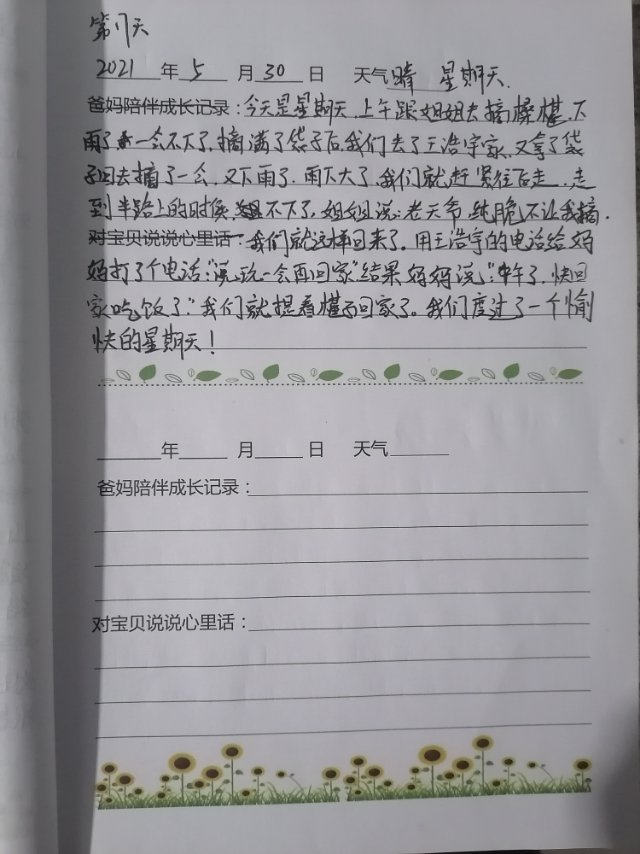 第17天
2021年5月30日 天气晴 星期天.
爸妈陪伴成长记录：今天是星期天.上午跟姐姐去摘桑椹.下
雨了一会不下了.摘满了袋子后.我们去了王浩宇家.又拿了袋
子回去摘了一会.又下雨了.雨下大了.我们就赶紧往后走.走
到半路上的时候.不下了.姐姐说:老天爷纯脆不让我摘.
对宝贝说说心里话：我们就这样回来了.用王浩宇的电话给妈
妈打了个电话:"说玩一会再回家"结果妈妈说:"中午了.快回
家吃饭了"我们就提着椹子回家了.我们度过了一个愉
快的星期天!
年 月 日 天气
爸妈陪伴成长记录：
对宝贝说说心里话：